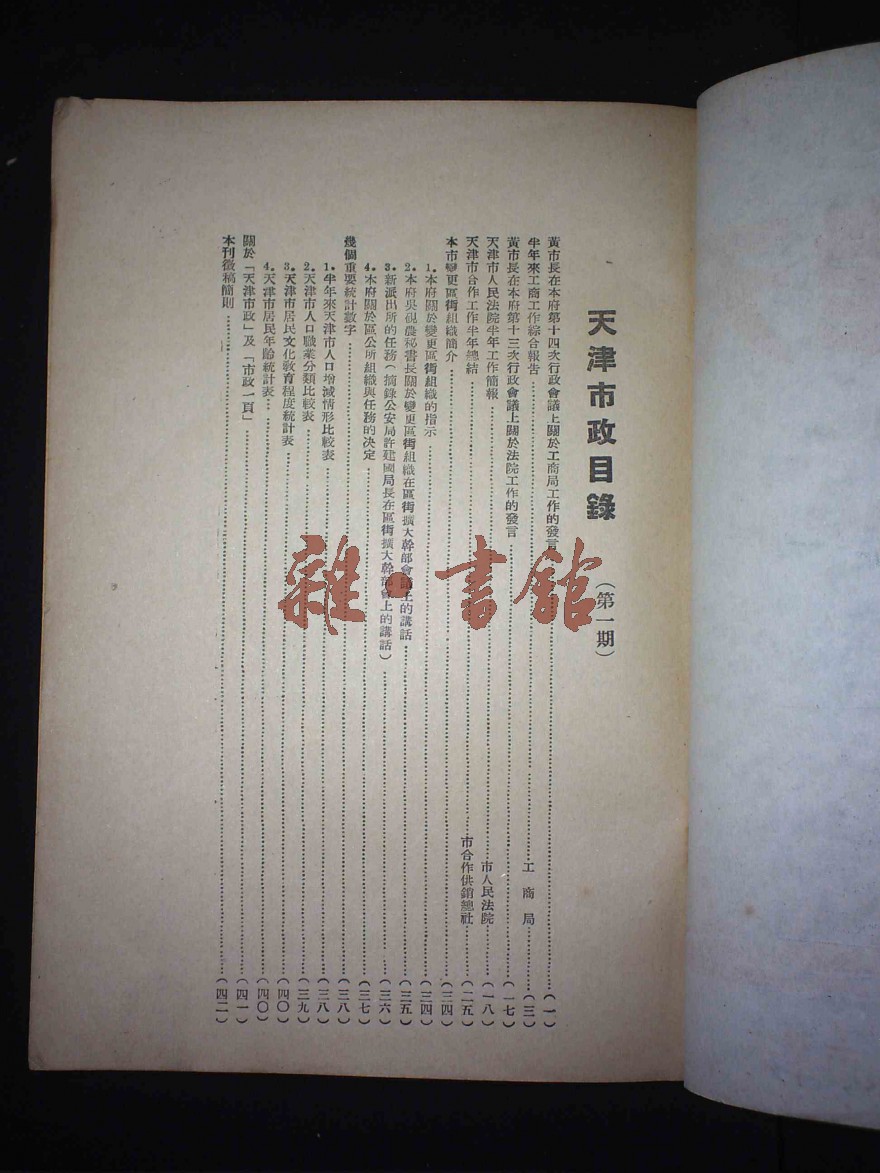 天津市政目錄 (第一期)
黃市長在本府第十四次行政會議上關於工商局工作的發言……(一)
半年來工商工作綜合報告……工商局……(三)
黃市長在本府第十三次行政會議上關於法院工作的發言……(一七)
天津市人民法院半年工作簡報……市人民法院……(一八)
天津市合作工作半年總結……市合作供銷總社……(二五)
本市變更區街組織簡介……(三四)
1.本府關於變更區街組織的指示……(三四)
2.本府吳硯農秘書長關於變更區街組織在區街擴大幹部會議上的講話……(三五)
3.新派出所的任務(摘錄公安局許建國局長在區街擴大幹部會上的講話)……(三六)
4.本府關於區公所組織與任務的決定……(三七)
幾個重要統計數字……(三八)
1.半年來天津市人口增減情形比較表……(三八)
2.天津市人口職業分類比較表……(三九)
3.天津市居民文化教育程度統計表……(四〇)
4.天津市居民年齡統計表……(四〇)
關於「天津市政」及「市政一頁」……(四一)
本刊徵稿簡則……(四二)
雜·書館